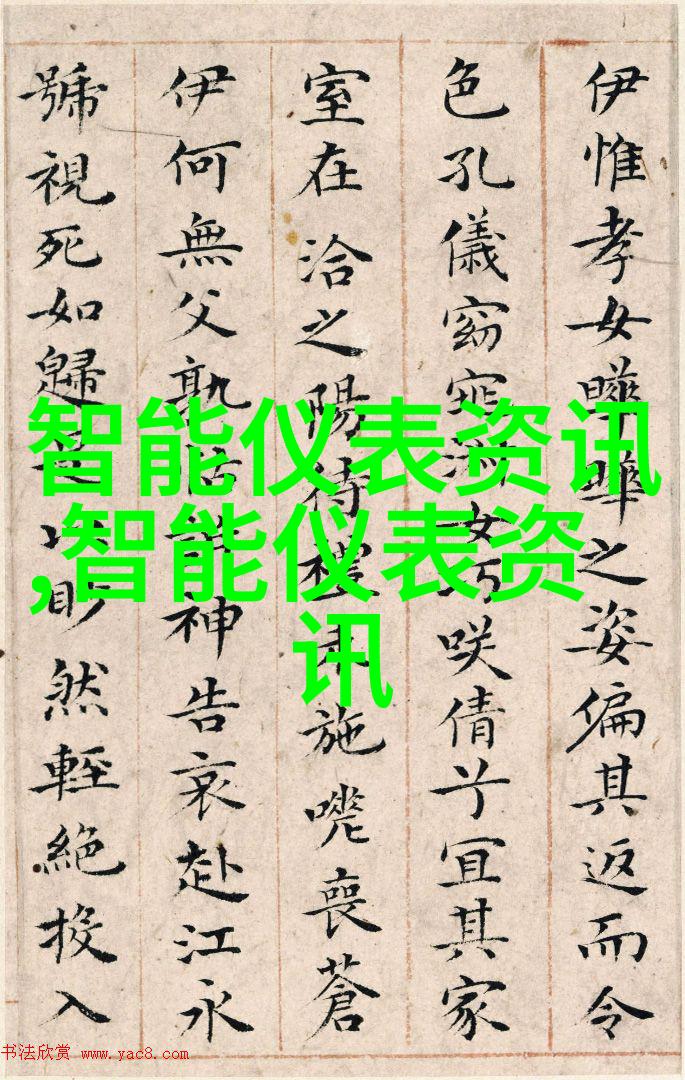 伊惟孝女曄曄之姿偏其返而令
色孔儀窈窕淑女巧咲倩兮宜其家
室在洽之陽待禮未施嗟喪蒼
伊何無父孰怙訴神告哀赴江永
號視死如歸是以眇然輕絶投入
智能仪表资讯
,智能仪表资
讯
书法欣赏 www.yac8.com